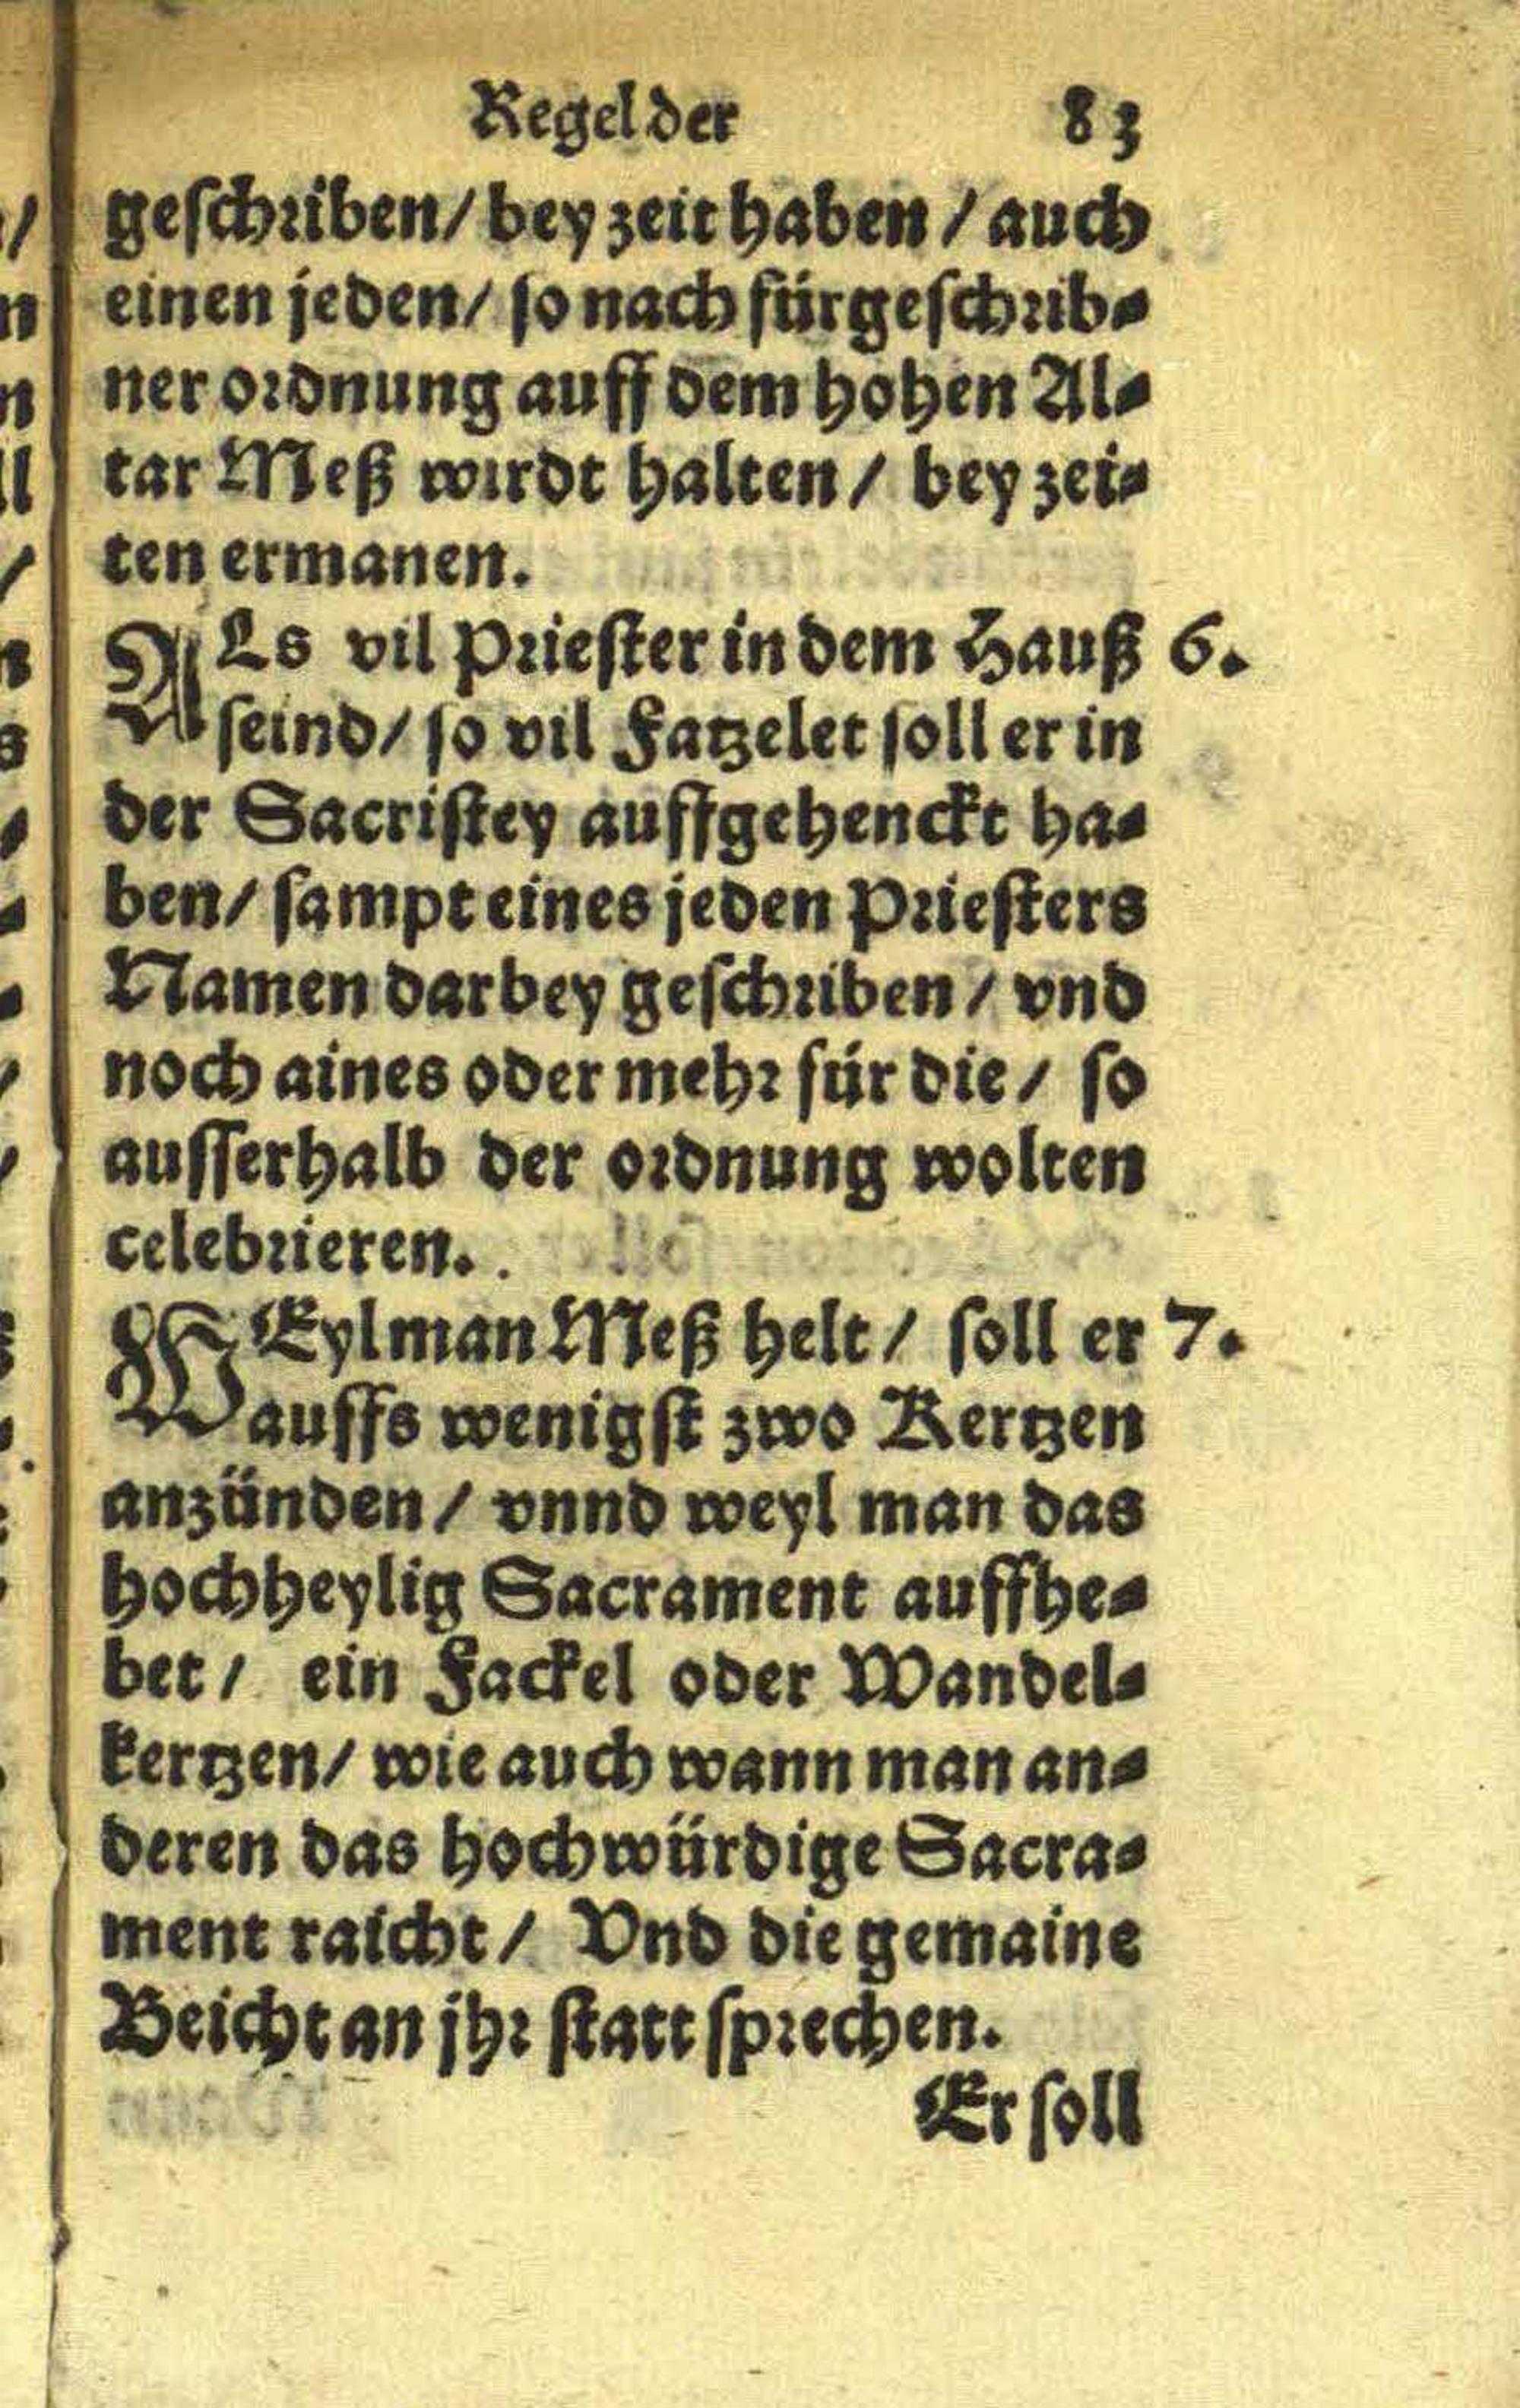 Regel der 83
geschriben/ bey zeit haben / auch
einen jeden/ so nach fürgeschrib⸗
ner ordnung auff dem hohen Al⸗
tar Meß wirdt halten / bey zei⸗
ten ermanen.
ALs vil Priester in dem Hauß 6.
seind/ so vil Fatzelet soll er in
der Sacristey auffgehenckt ha⸗
ben/ sampt eines jeden Priesters
Namen darbey geschriben / vnd
noch aines oder mehr für die / so
ausserhalb der ordnung wolten
celebrieren.
WEyl man Meß helt / soll er 7.
auffs wenigst zwo Kertzen
anzünden / vnnd weyl man das
hochheylig Sacrament auffhe⸗
bet / ein Fackel oder Wandel⸗
kertzen/ wie auch wann man an⸗
deren das hochwürdige Sacra⸗
ment raicht / Vnd die gemaine
Beicht an jhr statt sprechen.
Er soll